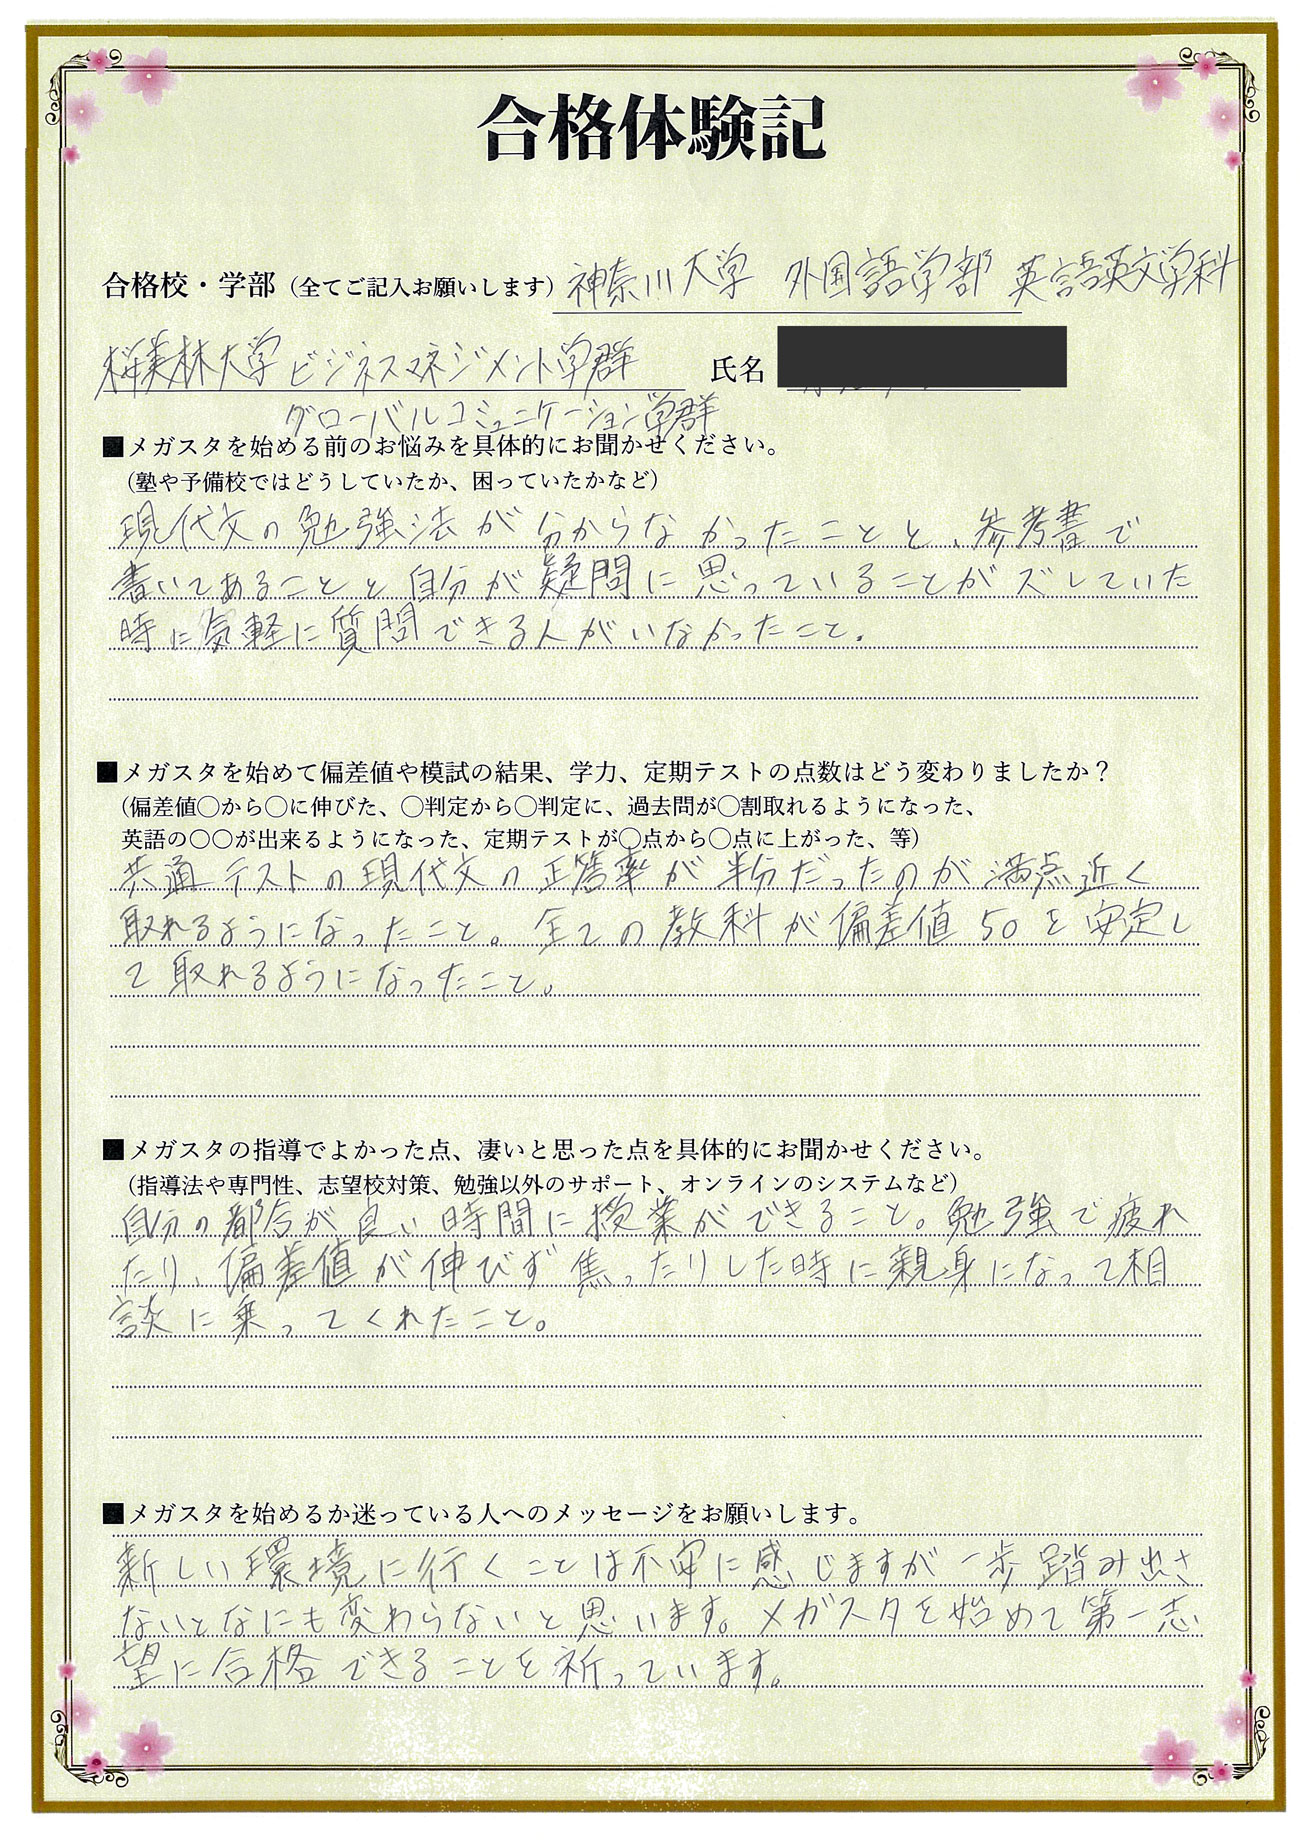 合格体験記
合格校・学部（全てご記入お願いします）神奈川大学 外国語学部 英語英文学科
桜美林大学ビジネスマネジメント学群 氏名
グローバルコミュニケーション学群
■メガスタを始める前のお悩みを具体的にお聞かせください。
（塾や予備校ではどうしていたか、困っていたかなど）
現代文の勉強法が分からなかったことと、参考書で
書いてあることと自分が疑問に思っていることがズレていた
時に気軽に質問できる人がいなかったこと。
■メガスタを始めて偏差値や模試の結果、学力、定期テストの点数はどう変わりましたか？
（偏差値〇から〇に伸びた、〇判定から〇判定に、過去問が〇割取れるようになった、
英語の〇〇が出来るようになった、定期テストが〇点から〇点に上がった、等）
共通テストの現代文の正答率が半分だったのが満点近く
取れるようになったこと。全ての教科が偏差値50を安定し
て取れるようになったこと。
■メガスタの指導でよかった点、凄いと思った点を具体的にお聞かせください。
（指導法や専門性、志望校対策、勉強以外のサポート、オンラインのシステムなど）
自分の都合が良い時間に授業ができること。勉強で疲れ
たり、偏差値が伸びず焦ったりした時に親身になって相
談に乗ってくれたこと。
■メガスタを始めるか迷っている人へのメッセージをお願いします。
新しい環境に行くことは不安に感じますが一歩踏み出さ
ないとなにも変わらないと思います。メガスタを始めて第一志
望に合格できることを祈っています。